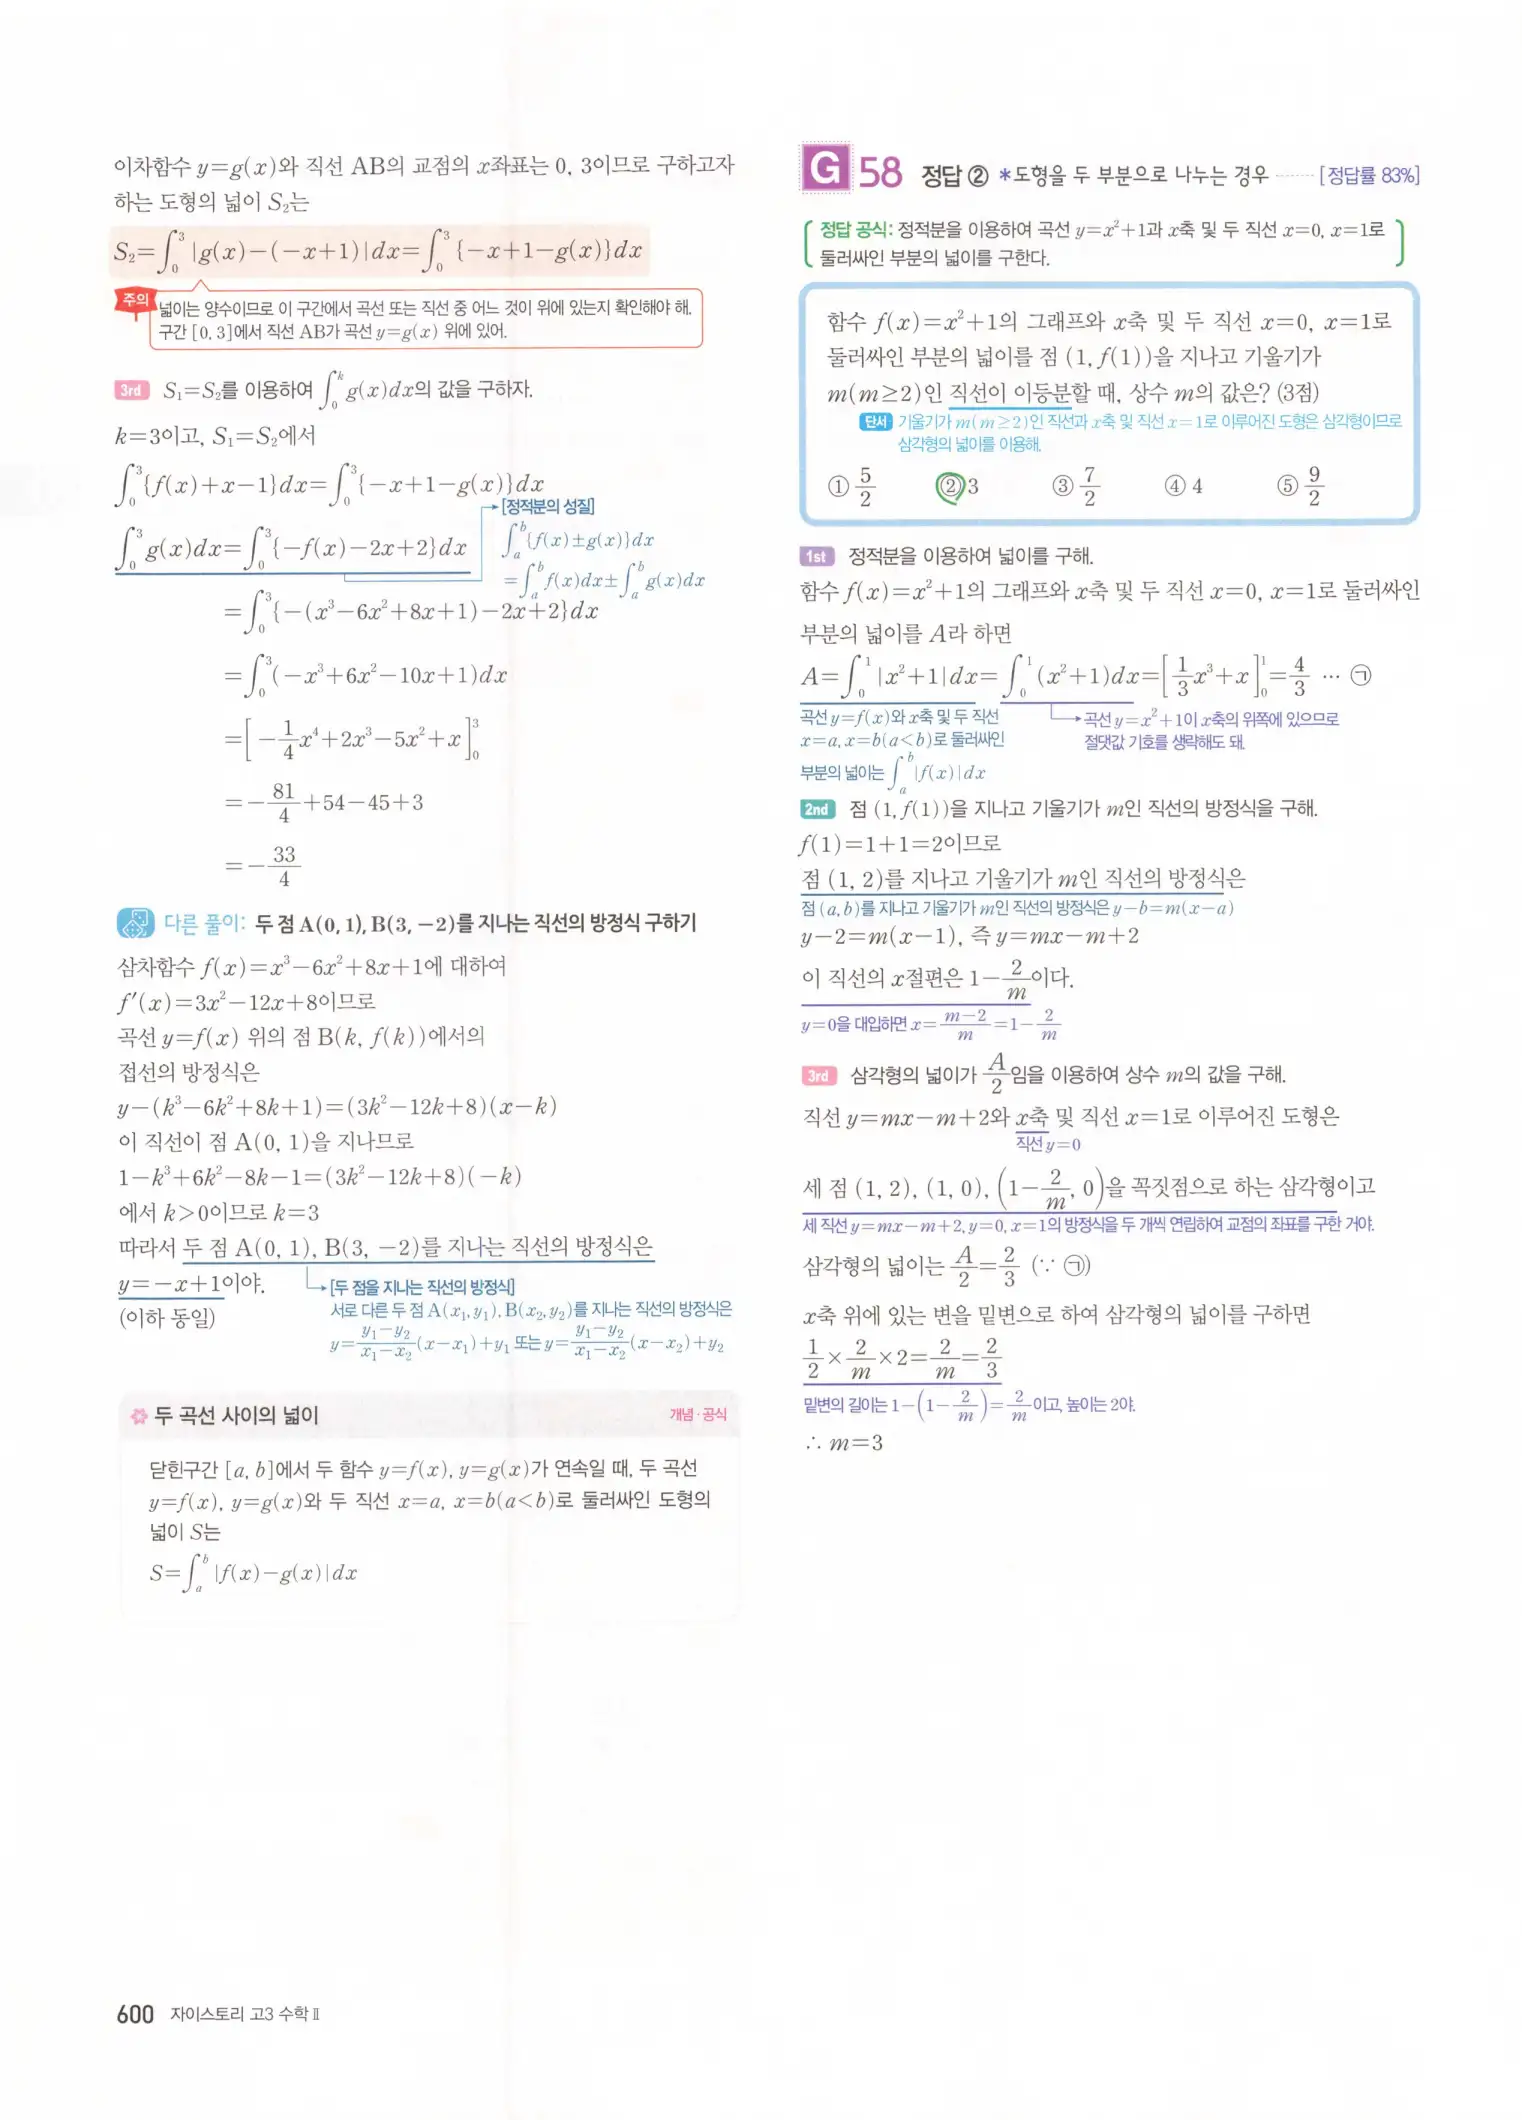 이차함수 y=g(x)와 직선 AB의 교점의 x좌표는 0, 3이므로 구하고자
하는 도형의 넓이 S₂는
S₂=∫₀³|g(x)-(-x+1)|dx=∫₀³{-x+1-g(x)}dx
주의 넓이는 양수이므로 이 구간에서 곡선 또는 직선 중 어느 것이 위에 있는지 확인해야 해.
구간 [0, 3]에서 직선 AB가 곡선 y=g(x) 위에 있어.
3rd S₁=S₂를 이용하여 ∫₀ᵏg(x)dx의 값을 구하자.
k=3이고, S₁=S₂에서
∫₀³{f(x)+x-1}dx=∫₀³{-x+1-g(x)}dx
∫₀³g(x)dx=∫₀³{-f(x)-2x+2}dx
[정적분의 성질]
∫ₐᵇ{f(x)±g(x)}dx
=∫ₐᵇf(x)dx±∫ₐᵇg(x)dx
=∫₀³{-(x³-6x²+8x+1)-2x+2}dx
=∫₀³(-x³+6x²-10x+1)dx
=[-1/4x⁴+2x³-5x²+x]₀³
=-81/4+54-45+3
=-33/4
다른 풀이: 두 점 A(0, 1), B(3, -2)를 지나는 직선의 방정식 구하기
삼차함수 f(x)=x³-6x²+8x+1에 대하여
f'(x)=3x²-12x+8이므로
곡선 y=f(x) 위의 점 B(k, f(k))에서의
접선의 방정식은
y-(k³-6k²+8k+1)=(3k²-12k+8)(x-k)
이 직선이 점 A(0, 1)을 지나므로
1-k³+6k²-8k-1=(3k²-12k+8)(-k)
에서 k>0이므로 k=3
따라서 두 점 A(0, 1), B(3, -2)를 지나는 직선의 방정식은
y=-x+1이야.
[두 점을 지나는 직선의 방정식]
(이하 동일)
서로 다른 두 점 A(x₁, y₁), B(x₂, y₂)를 지나는 직선의 방정식은
y=(y₁-y₂)/(x₁-x₂)(x-x₁)+y₁ 또는 y=(y₁-y₂)/(x₁-x₂)(x-x₂)+y₂
두 곡선 사이의 넓이 개념·공식
닫힌구간 [a, b]에서 두 함수 y=f(x), y=g(x)가 연속일 때, 두 곡선
y=f(x), y=g(x)와 두 직선 x=a, x=b(a<b)로 둘러싸인 도형의
넓이 S는
S=∫ₐᵇ|f(x)-g(x)|dx
G 58 정답 ② *도형을 두 부분으로 나누는 경우 ······ [정답률 83%]
정답 공식: 정적분을 이용하여 곡선 y=x²+1과 x축 및 두 직선 x=0, x=1로
둘러싸인 부분의 넓이를 구한다.
함수 f(x)=x²+1의 그래프와 x축 및 두 직선 x=0, x=1로
둘러싸인 부분의 넓이를 점 (1, f(1))을 지나고 기울기가
m(m≥2)인 직선이 이등분할 때, 상수 m의 값은? (3점)
단서 기울기가 m(m≥2)인 직선과 x축 및 직선 x=1로 이루어진 도형은 삼각형이므로
삼각형의 넓이를 이용해.
① 5/2 ② 3 ③ 7/2 ④ 4 ⑤ 9/2
1st 정적분을 이용하여 넓이를 구해.
함수 f(x)=x²+1의 그래프와 x축 및 두 직선 x=0, x=1로 둘러싸인
부분의 넓이를 A라 하면
A=∫₀¹|x²+1|dx=∫₀¹(x²+1)dx=[1/3x³+x]₀¹=4/3 … ㉠
곡선 y=f(x)와 x축 및 두 직선
x=a, x=b(a<b)로 둘러싸인
부분의 넓이는 ∫ₐᵇ|f(x)|dx
곡선 y=x²+1이 x축의 위쪽에 있으므로
절댓값 기호를 생략해도 돼.
2nd 점 (1, f(1))을 지나고 기울기가 m인 직선의 방정식을 구해.
f(1)=1+1=2이므로
점 (1, 2)를 지나고 기울기가 m인 직선의 방정식은
점 (a, b)를 지나고 기울기가 m인 직선의 방정식은 y-b=m(x-a)
y-2=m(x-1), 즉 y=mx-m+2
이 직선의 x절편은 1-2/m이다.
y=0을 대입하면 x=(m-2)/m=1-2/m
3rd 삼각형의 넓이가 A/2임을 이용하여 상수 m의 값을 구해.
직선 y=mx-m+2와 x축 및 직선 x=1로 이루어진 도형은
직선 y=0
세 점 (1, 2), (1, 0), (1-2/m, 0)을 꼭짓점으로 하는 삼각형이고
세 직선 y=mx-m+2, y=0, x=1의 방정식을 두 개씩 연립하여 교점의 좌표를 구한 거야.
삼각형의 넓이는 A/2=2/3 (∵ ㉠)
x축 위에 있는 변을 밑변으로 하여 삼각형의 넓이를 구하면
1/2×2/m×2=2/m=2/3
밑변의 길이는 1-(1-2/m)=2/m이고, 높이는 2야.
∴ m=3
600 자이스토리 고3 수학Ⅱ